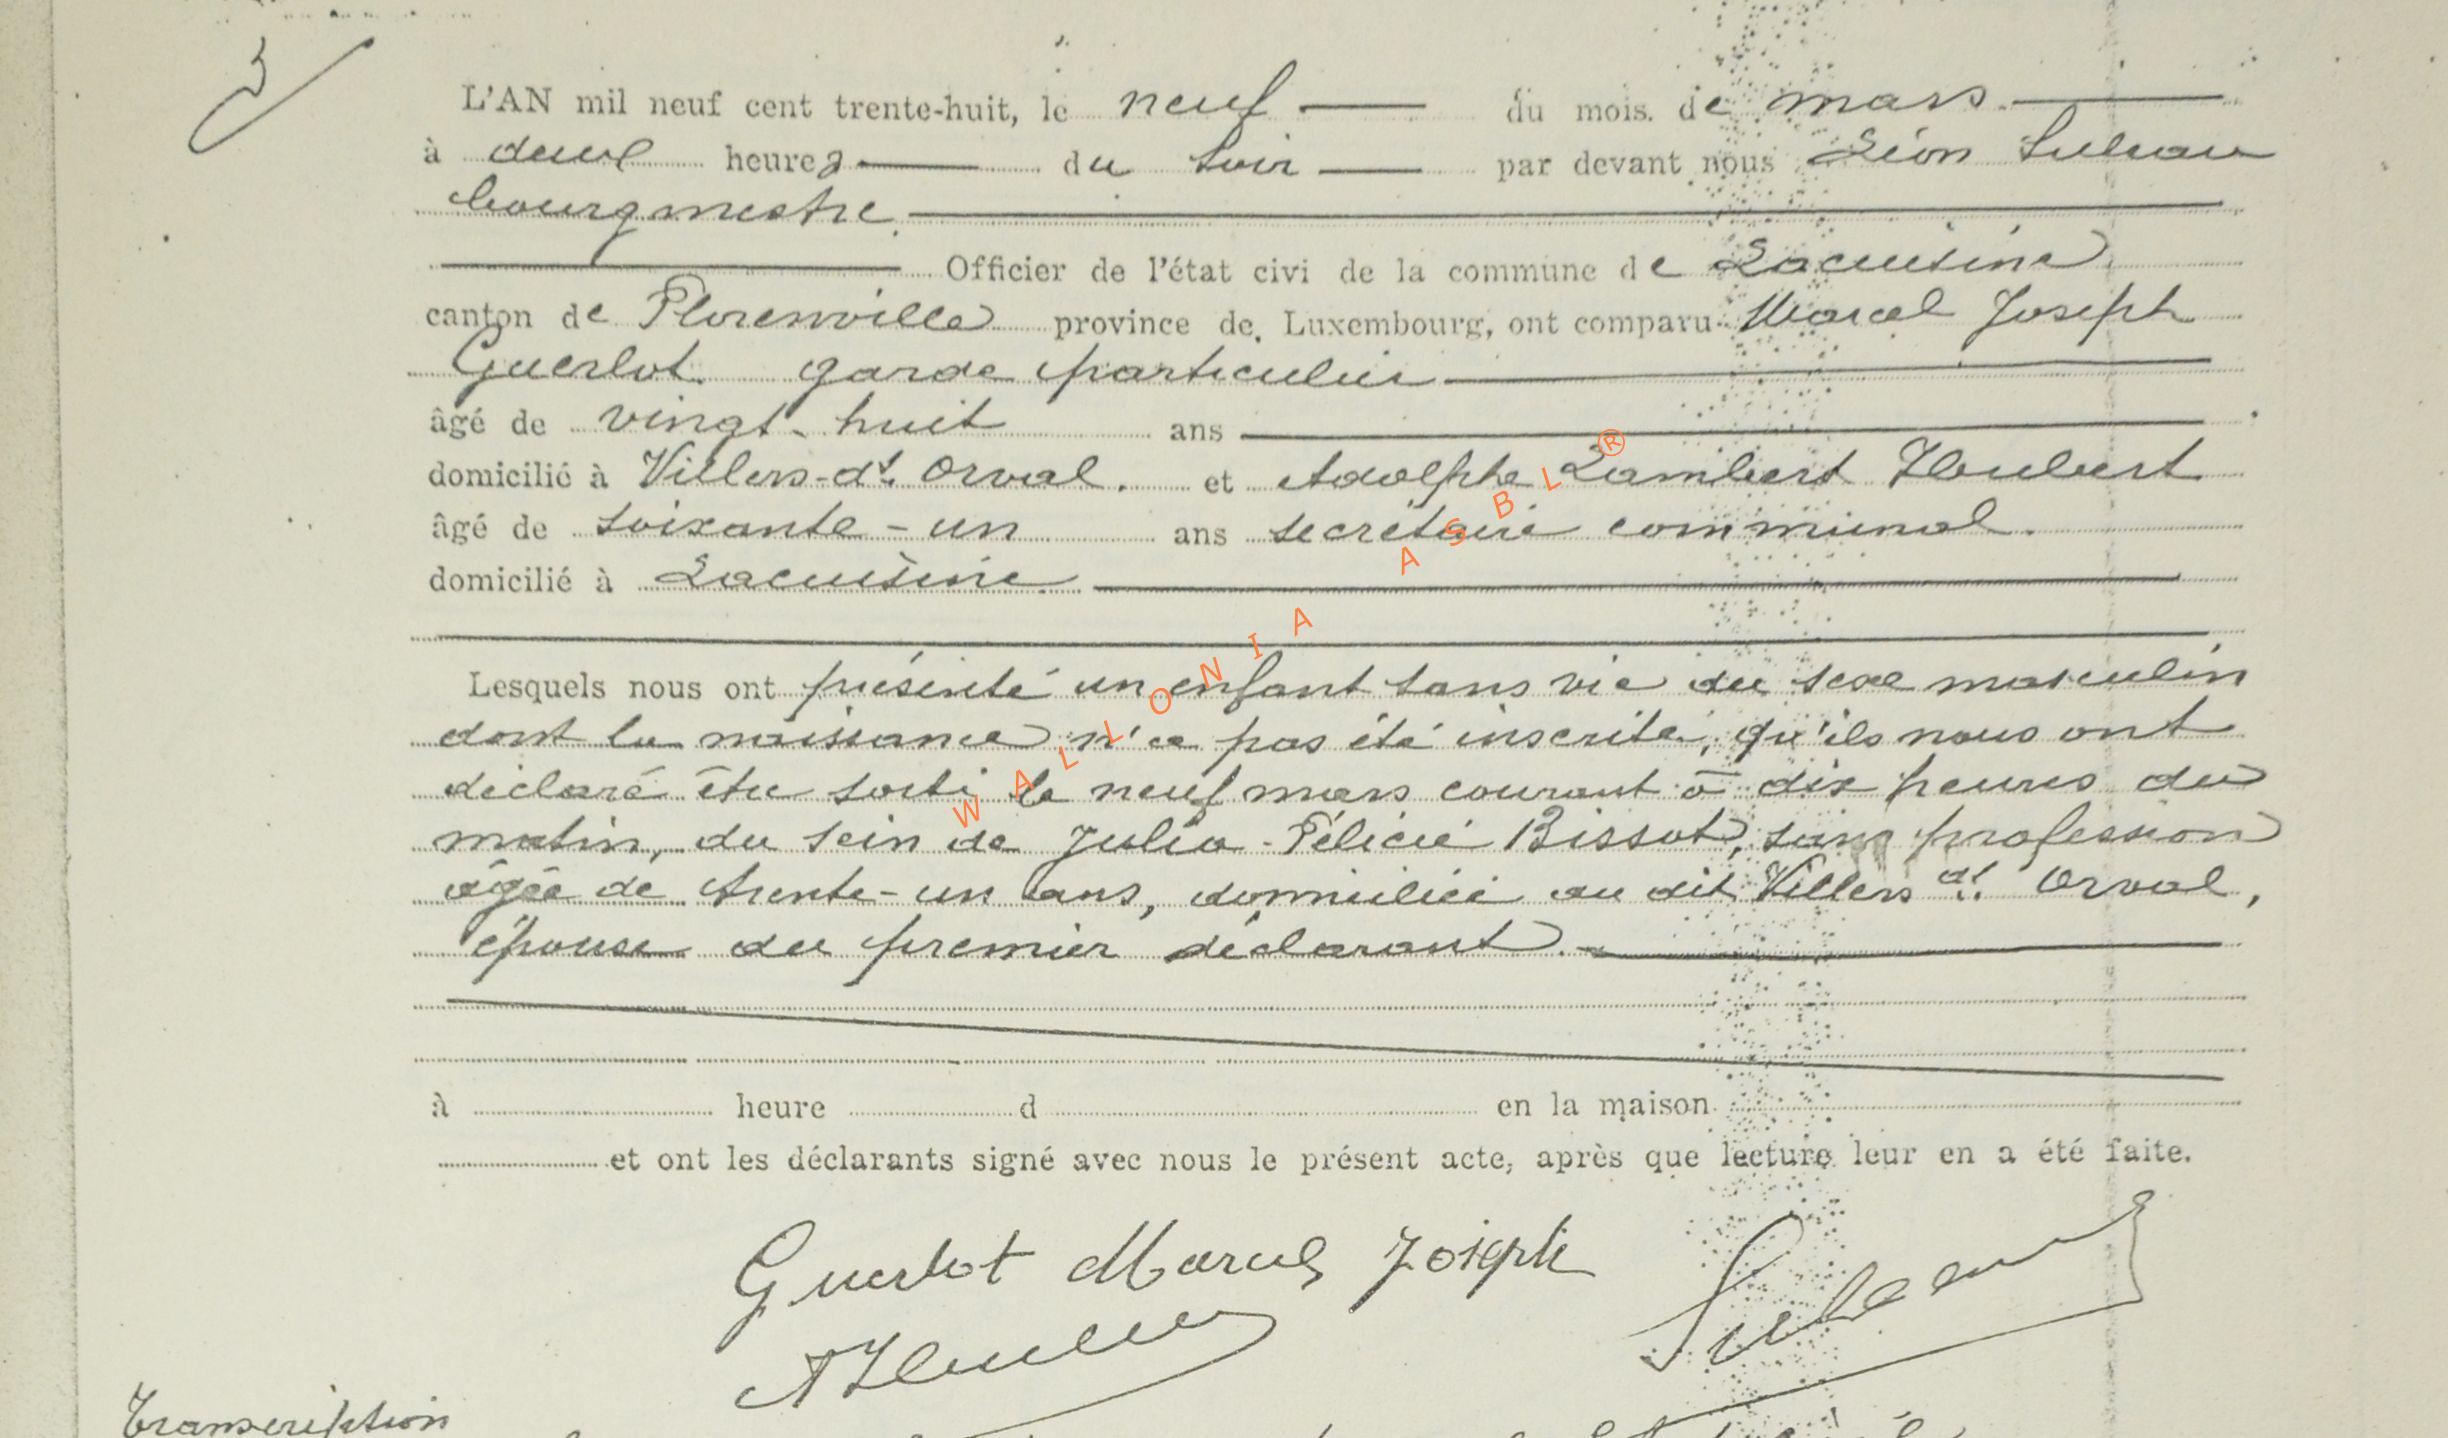 3
L'AN mil neuf cent trente-huit, le neuf du mois de mars
à deux heures du soir par devant nous Léon
bourgmestre
Officier de l'état civi de la commune de Lacuisine
canton de Florenville province de Luxembourg, ont comparu Marcel Joseph
Guerlot garde particulier
âgé de vingt-huit ans
domicilié à Villers-dt Orval. et Adolphe Lambert Houbert
âgé de soixante-un ans secrétaire communal.
domicilié à Lacuisine
Lesquels nous ont présenté un enfant sans vie du sexe masculin
dont la naissance n'a pas été inscrite, qu'ils nous ont
déclaré être sorti le neuf mars courant à dix heures du
matin, du sein de Julia-Félicie Bissot, sans profession
âgée de trente-un ans, domiciliée au dit Villers dt Orval,
épouse du premier déclarant.
à heure d en la maison
et ont les déclarants signé avec nous le présent acte, après que lecture leur en a été faite.
Guerlot Marcel Joseph
Transcription
WALLONIA ASBL ®